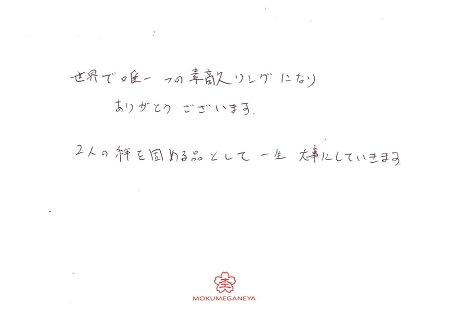 世界で唯一つの素敵なリングになり
ありがとうございます.
2人の絆を固める品として一生大事にしていきます
MOKUMEGANEYA